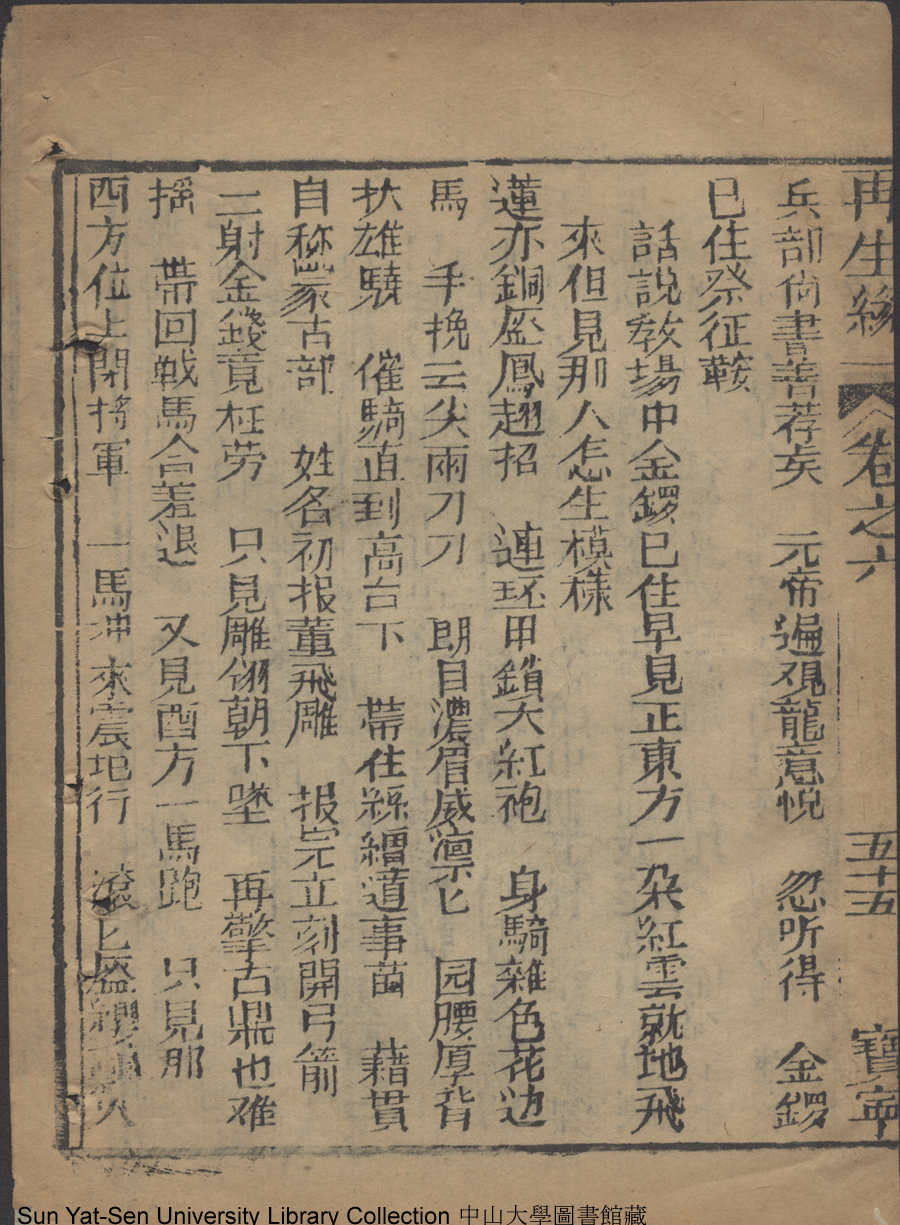 再生緣 卷之六 五十五 寶寧
兵部尙書善荐矣 元帝遍覌龍意悅 忽听得 金鑼
已住祭征鞍
話說敎場中金鑼已住早見正東方一朶紅雲就地飛
來但見那人怎生模樣
蓮亦銅盔鳳趐招 連环甲鎖大紅袍 身騎雜色花边
馬 手挽云尖兩刀刀 朗目濃眉威凛匕 园腰厚背
扒雄驍 催騎直到高台下 帶住絲繮道事苗 藉貫
自称蒙古部 姓名初报董飛雕 报完立刻開弓箭
二射金錢竟枉劳 只見雕翎朝下墜 再擎古鼎也难
摇 帶回戰馬合羞退 又見酉方一馬跑 只見那
西方位上閉將軍 一馬冲來震地行 滾匕盔纓
Sun Yat-Sen University Library Collection 中山大學圖書館藏